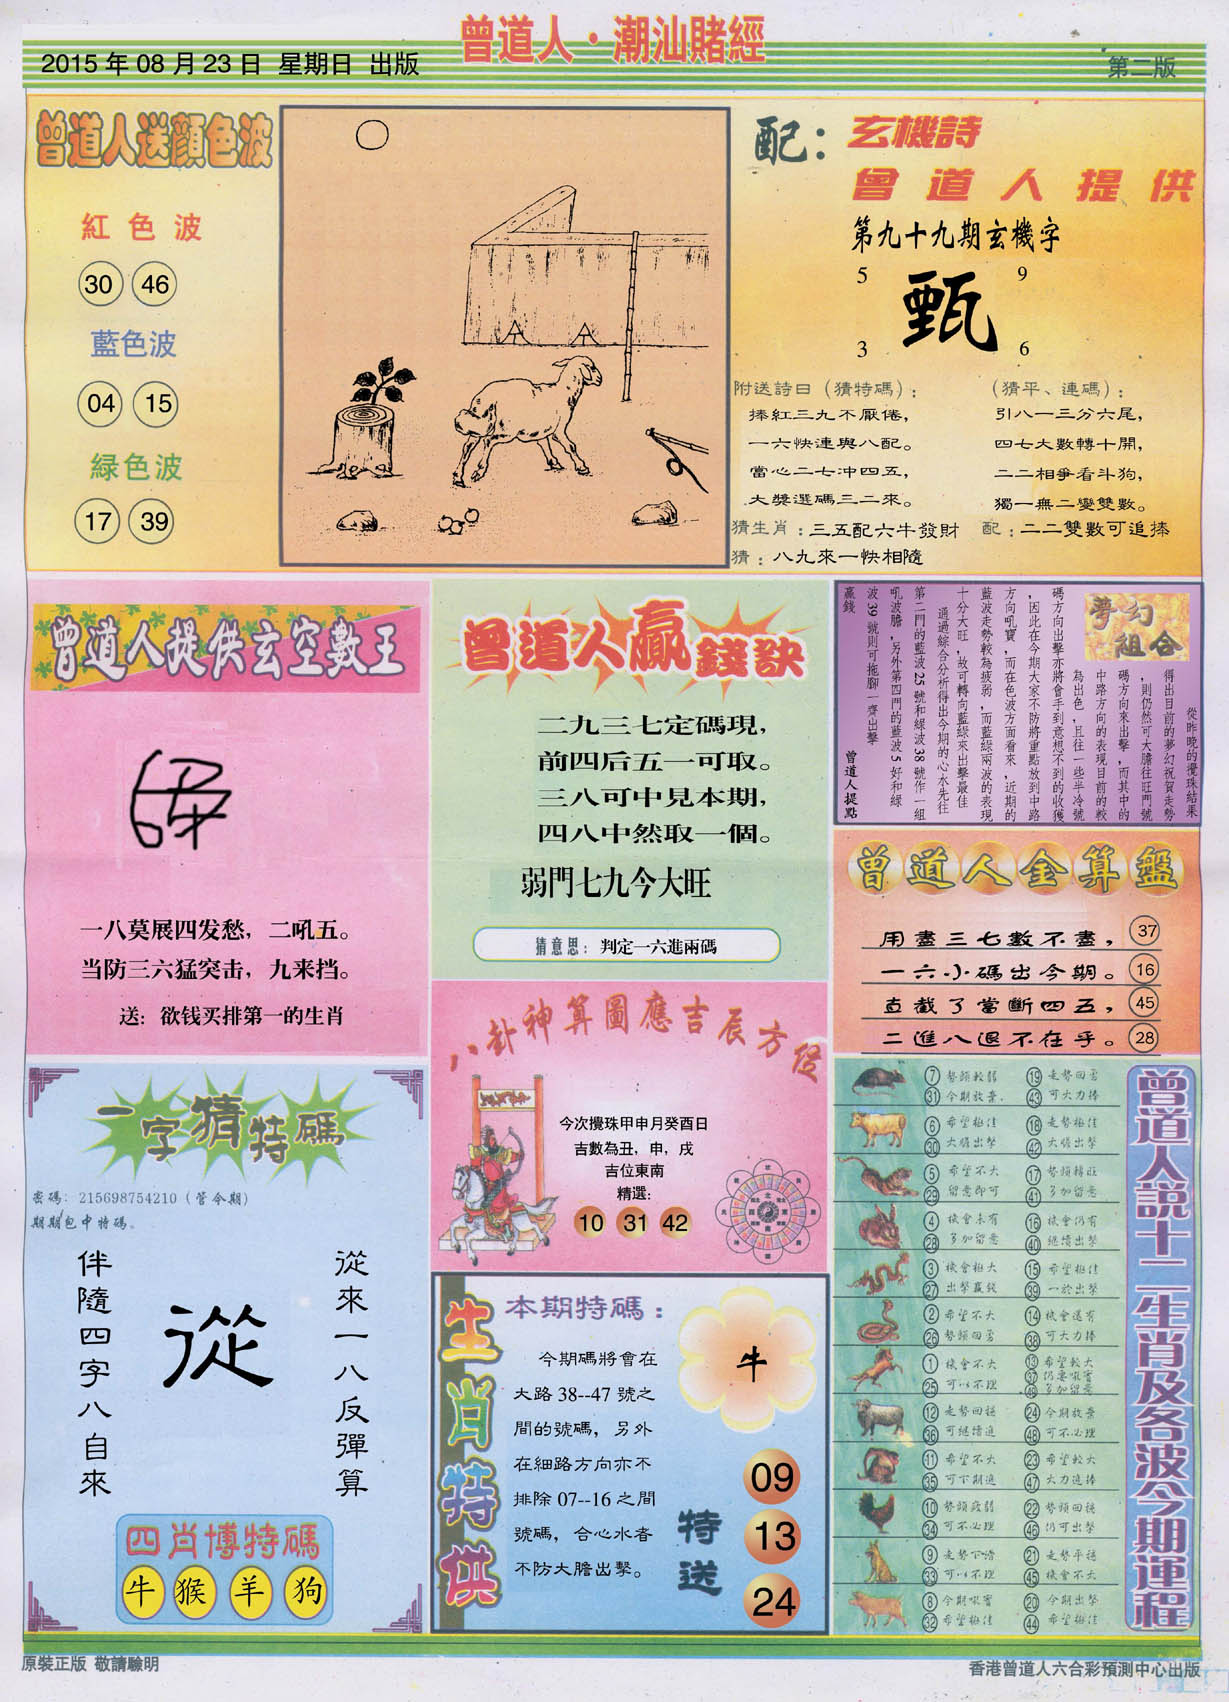 曾道人·潮汕賭經
2015 年 08 月 23 日 星期日 出版
第二版
曾道人送顏色波
紅色波
30 46
藍色波
04 15
緑色波
17 39
配：
玄機詩
曾道人提供
第九十九期玄機字
5 9
甄
3 6
附送詩曰（猜特碼）：
捧紅三九不厭倦，
一六快連與八配。
當心二七冲四五，
大獎選碼三二來。
猜生肖：三五配六牛發財
猜：八九來一快相隨
（猜平、連碼）：
引八一三分六尾，
四七大數轉十開，
二二相爭看斗狗，
獨一無二變雙數。
配：二二雙數可追捧
曾道人提供玄空數王
一八莫展四发愁，二吼五。
当防三六猛突击，九来挡。
送：欲钱买排第一的生肖
曾道人贏錢訣
二九三七定碼現，
前四后五一可取。
三八可中見本期，
四八中然取一個。
弱門七九今大旺
猜意思：判定一六進兩碼
夢幻
組合
從昨晚的攪珠結果
得出目前的夢幻祝賀走勢
，則仍然可大膽往旺門號
碼方向來出擊，而其中的
中路方向的表現目前的較
為出色，且往一些半冷號
碼方向出擊亦將會手到意想不到的收獲
，因此在今期大家不防將重點放到中路
方向吼寶，而在色波方面看來，近期的
藍波走勢較為疲弱，而藍綠兩波的表現
十分大旺，故可轉向藍綠來出擊最佳
通過綜合分析得出今期的心水先往
第二門的藍波 25 號和綠波 38 號作一組
吼波膽，另外第四門的藍波 5 好和綠
波 39 號則可拖腳一齊出擊
贏錢
曾道人提點
曾道人金算盤
用盡三七數不盡， 37
一六小碼出今期。 16
直截了當斷四五， 45
二進八退不在乎。 28
一字猜特碼
密碼：215698754210（管今期）
期期包中特碼。
從來一八反彈算
從
伴隨四字八自來
四肖博特碼
牛 猴 羊 狗
八卦神算圖應吉辰方位
今次攪珠甲申月癸酉日
吉數為丑，申，戌
吉位東南
精選：
10 31 42
生肖特供
本期特碼：
今期碼將會在
大路 38--47 號之
間的號碼，另外
在細路方向亦不
排除 07--16 之間
號碼，合心水者
不防大膽出擊。
牛
特送
09
13
24
曾道人説十二生肖及各波今期運程
7 勢頭較弱 19 走勢回勇
31 今期放棄 43 可大力捧
6 希望極佳 18 走勢極佳
30 大膽出擊 42 大膽出擊
5 希望不大 17 勢頭轉旺
29 留意即可 41 多加留意
4 機會未有 16 機會仍有
28 多加留意 40 繼續出擊
3 機會極大 15 希望極佳
27 出擊贏錢 39 一於出擊
2 希望不大 14 機會還有
26 勢頭回勇 38 可大力捧
1 機會不大 13 希望較大
25 可以不理 37 仍要吸寶
49 多加留意
12 走勢回穩 24 今期放棄
36 可繼續追 48 可不必理
11 希望不大 23 希望較大
35 可下期追 47 大力追捧
10 勢頭疲弱 22 勢頭回穩
34 可不必理 46 仍可出擊
9 走勢下滑 21 走勢平穩
33 可以不理 45 機會不大
8 今期吸寶 20 今期出擊
32 希望極佳 44 希望極佳
原裝正版 敬請驗明
香港曾道人六合彩預測中心出版